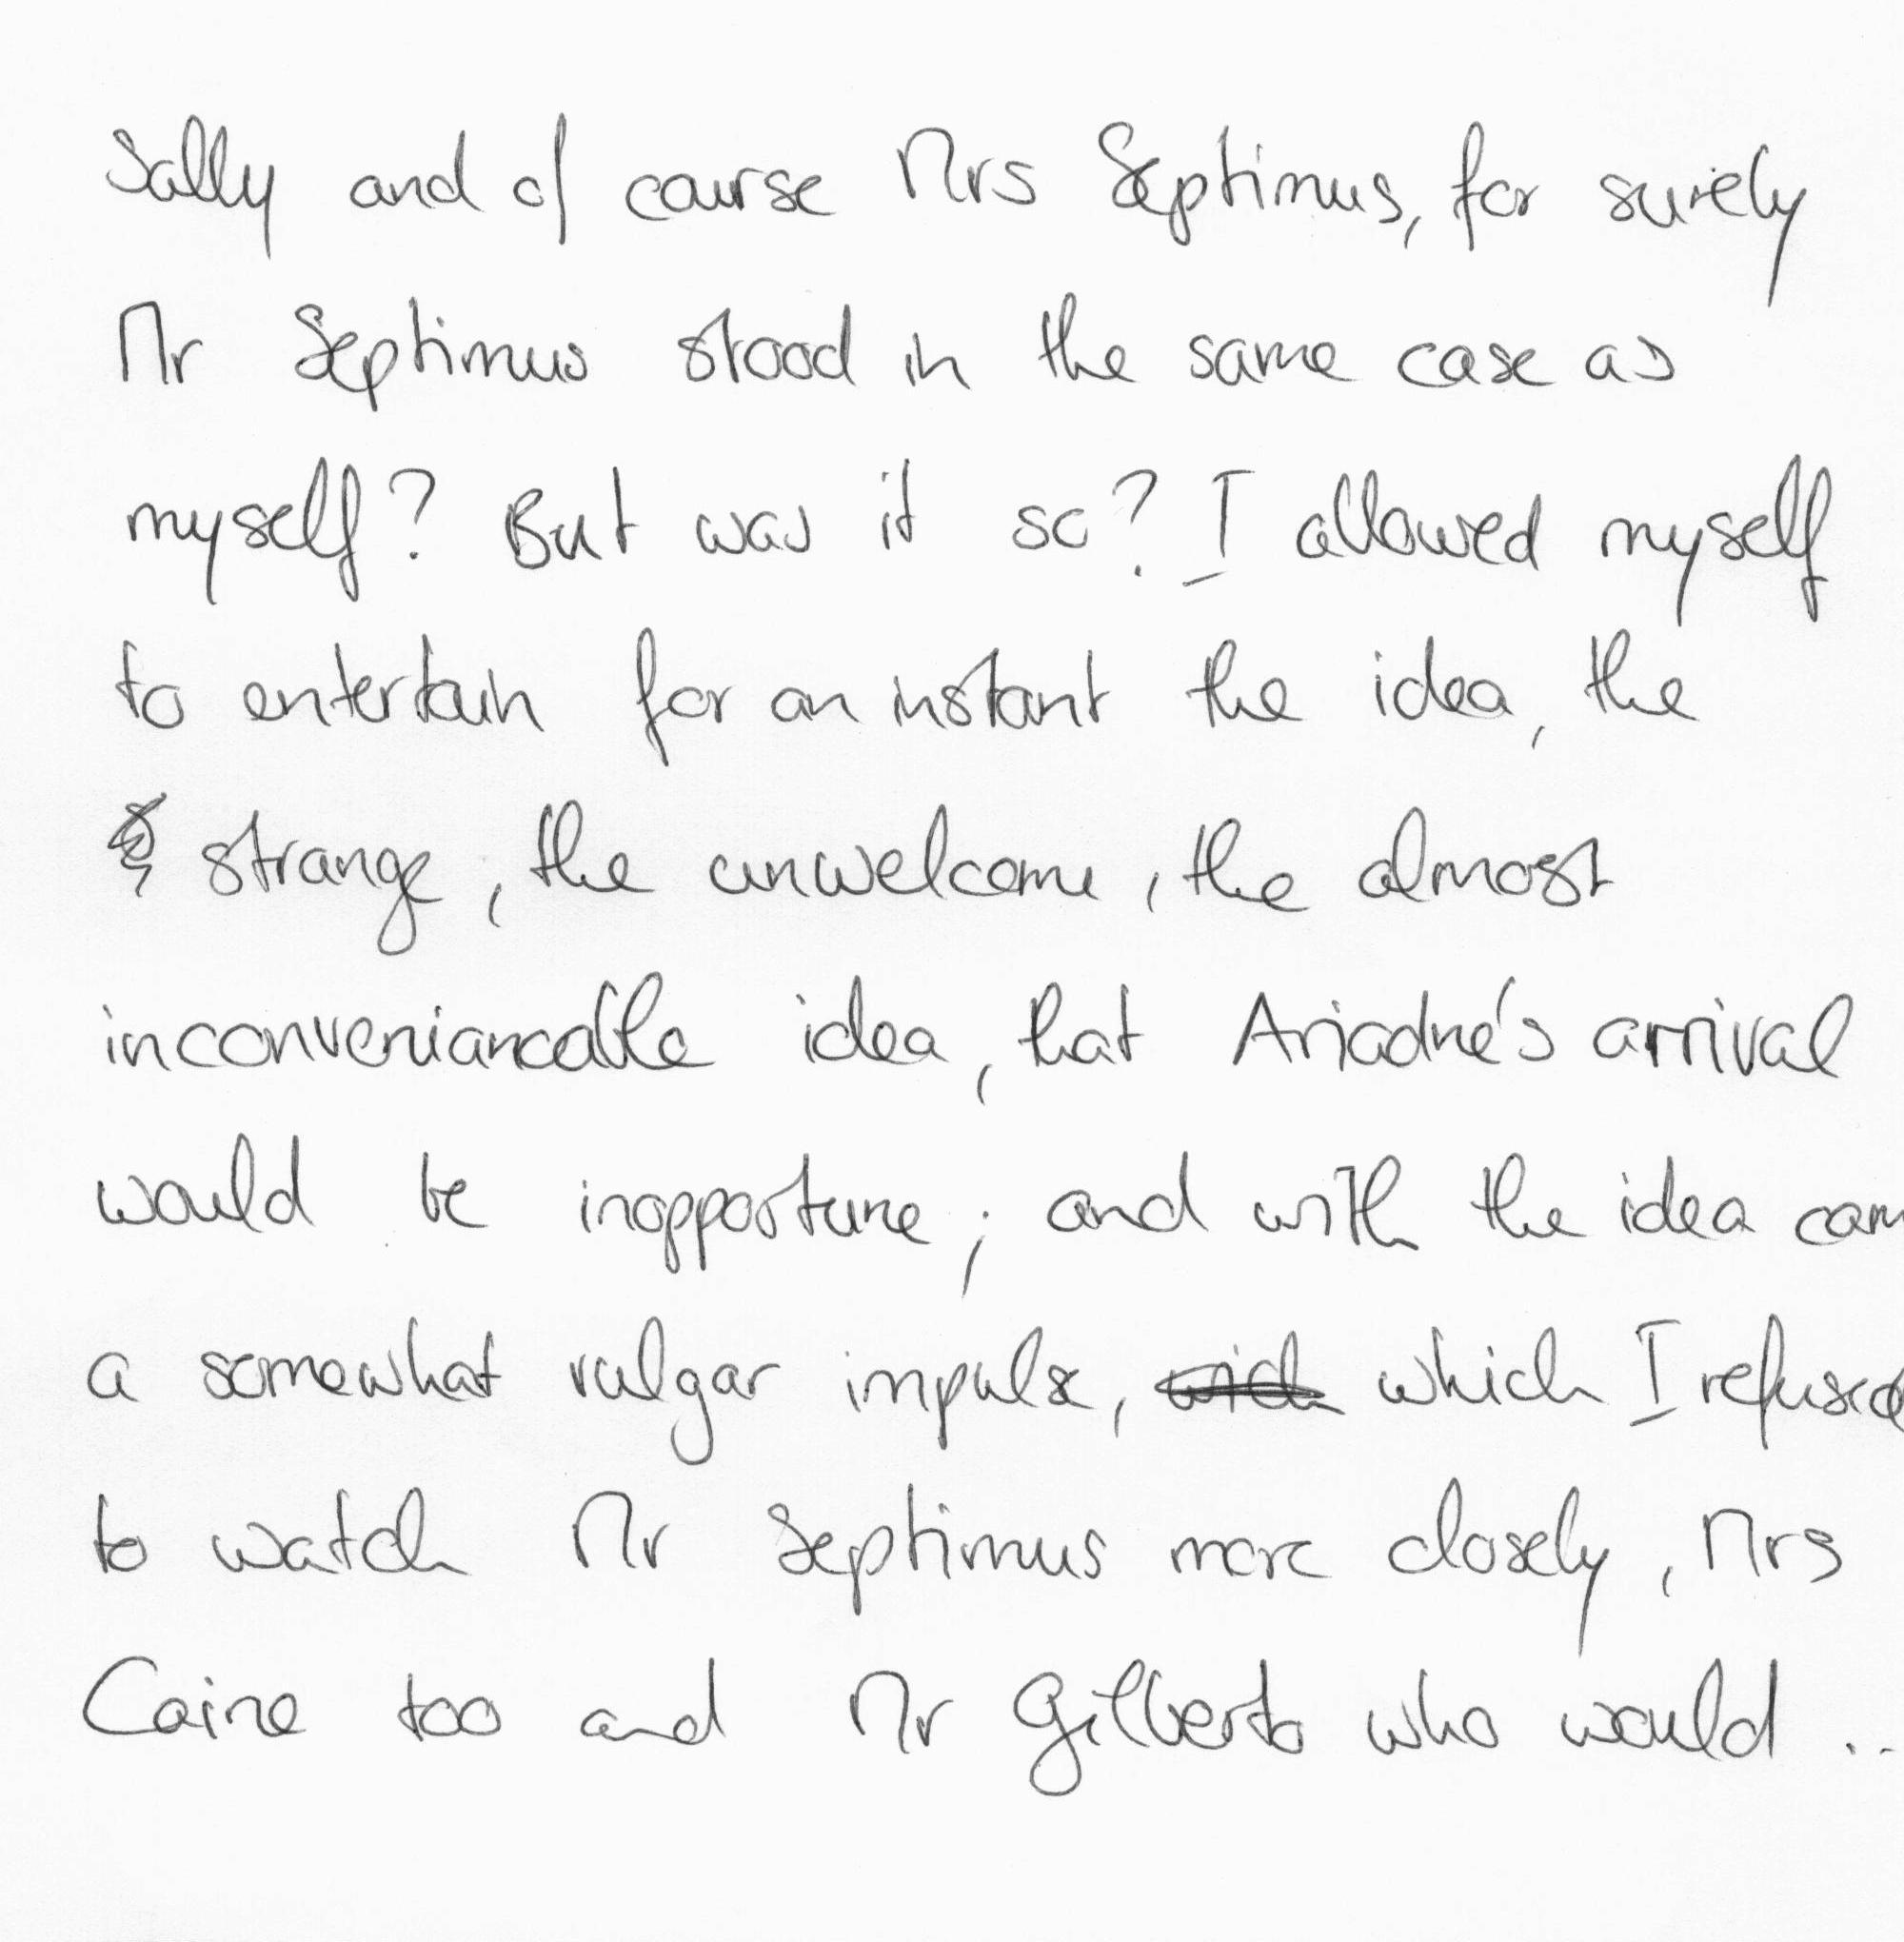 Sally and of course Mrs Septimus, for surely
Mr Septimus stood in the same case as
myself? But was it so? I allowed myself
to entertain for an instant the idea, the
strange, the unwelcome, the almost
inconveniancable idea, that Ariadne's arrival
would be inopportune; and with the idea cam
a somewhat vulgar impulse, which I refused
to watch Mr Septimus more closely, Mrs
Caine too and Mr Gilberto who would ..